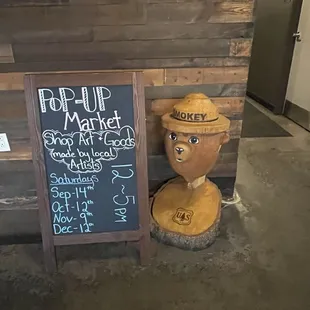 POP-UP
Market
Shop Art + Goods
(made by local
Artists)
Saturdays
Sep-14th
Oct-12th
Nov-9th
Dec-12th
12~5pm
SMOKEY